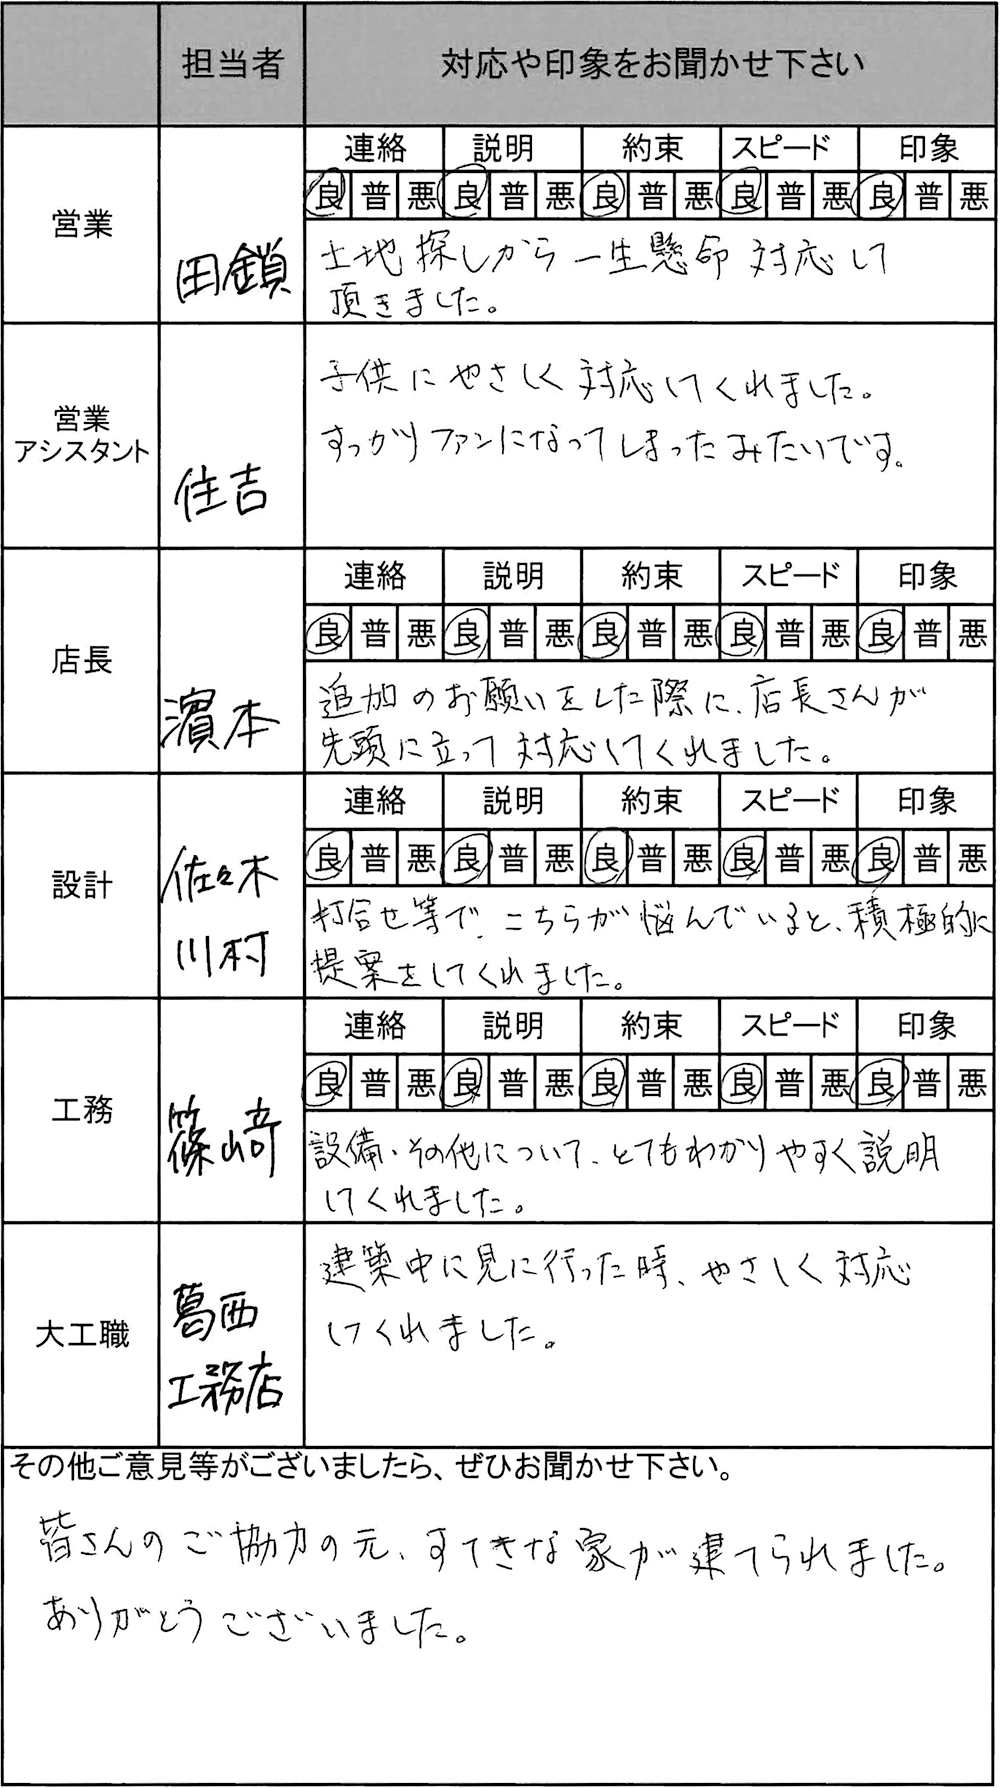 担当者 対応や印象をお聞かせ下さい
連絡 説明 約束 スピード 印象
良 普 悪 良 普 悪 良 普 悪 良 普 悪 良 普 悪
営業
田鎖
土地探しから一生懸命対応して
頂きました。
営業
アシスタント
住吉
子供にやさしく対応してくれました。
すっかりファンになってしまったみたいです。
連絡 説明 約束 スピード 印象
良 普 悪 良 普 悪 良 普 悪 良 普 悪 良 普 悪
店長
濱本
追加のお願いをした際に、店長さんが
先頭に立って対応してくれました。
連絡 説明 約束 スピード 印象
良 普 悪 良 普 悪 良 普 悪 良 普 悪 良 普 悪
設計
佐々木
川村
打合せ等で、こちらが悩んでいると、積極的に
提案をしてくれました。
連絡 説明 約束 スピード 印象
良 普 悪 良 普 悪 良 普 悪 良 普 悪 良 普 悪
工務
篠崎
設備・その他について、とてもわかりやすく説明
してくれました。
大工職
葛西
工務店
建築中に見に行った時、やさしく対応
してくれました。
その他ご意見等がございましたら、ぜひお聞かせ下さい。
皆さんのご協力の元、すてきな家が建てられました。
ありがとうございました。